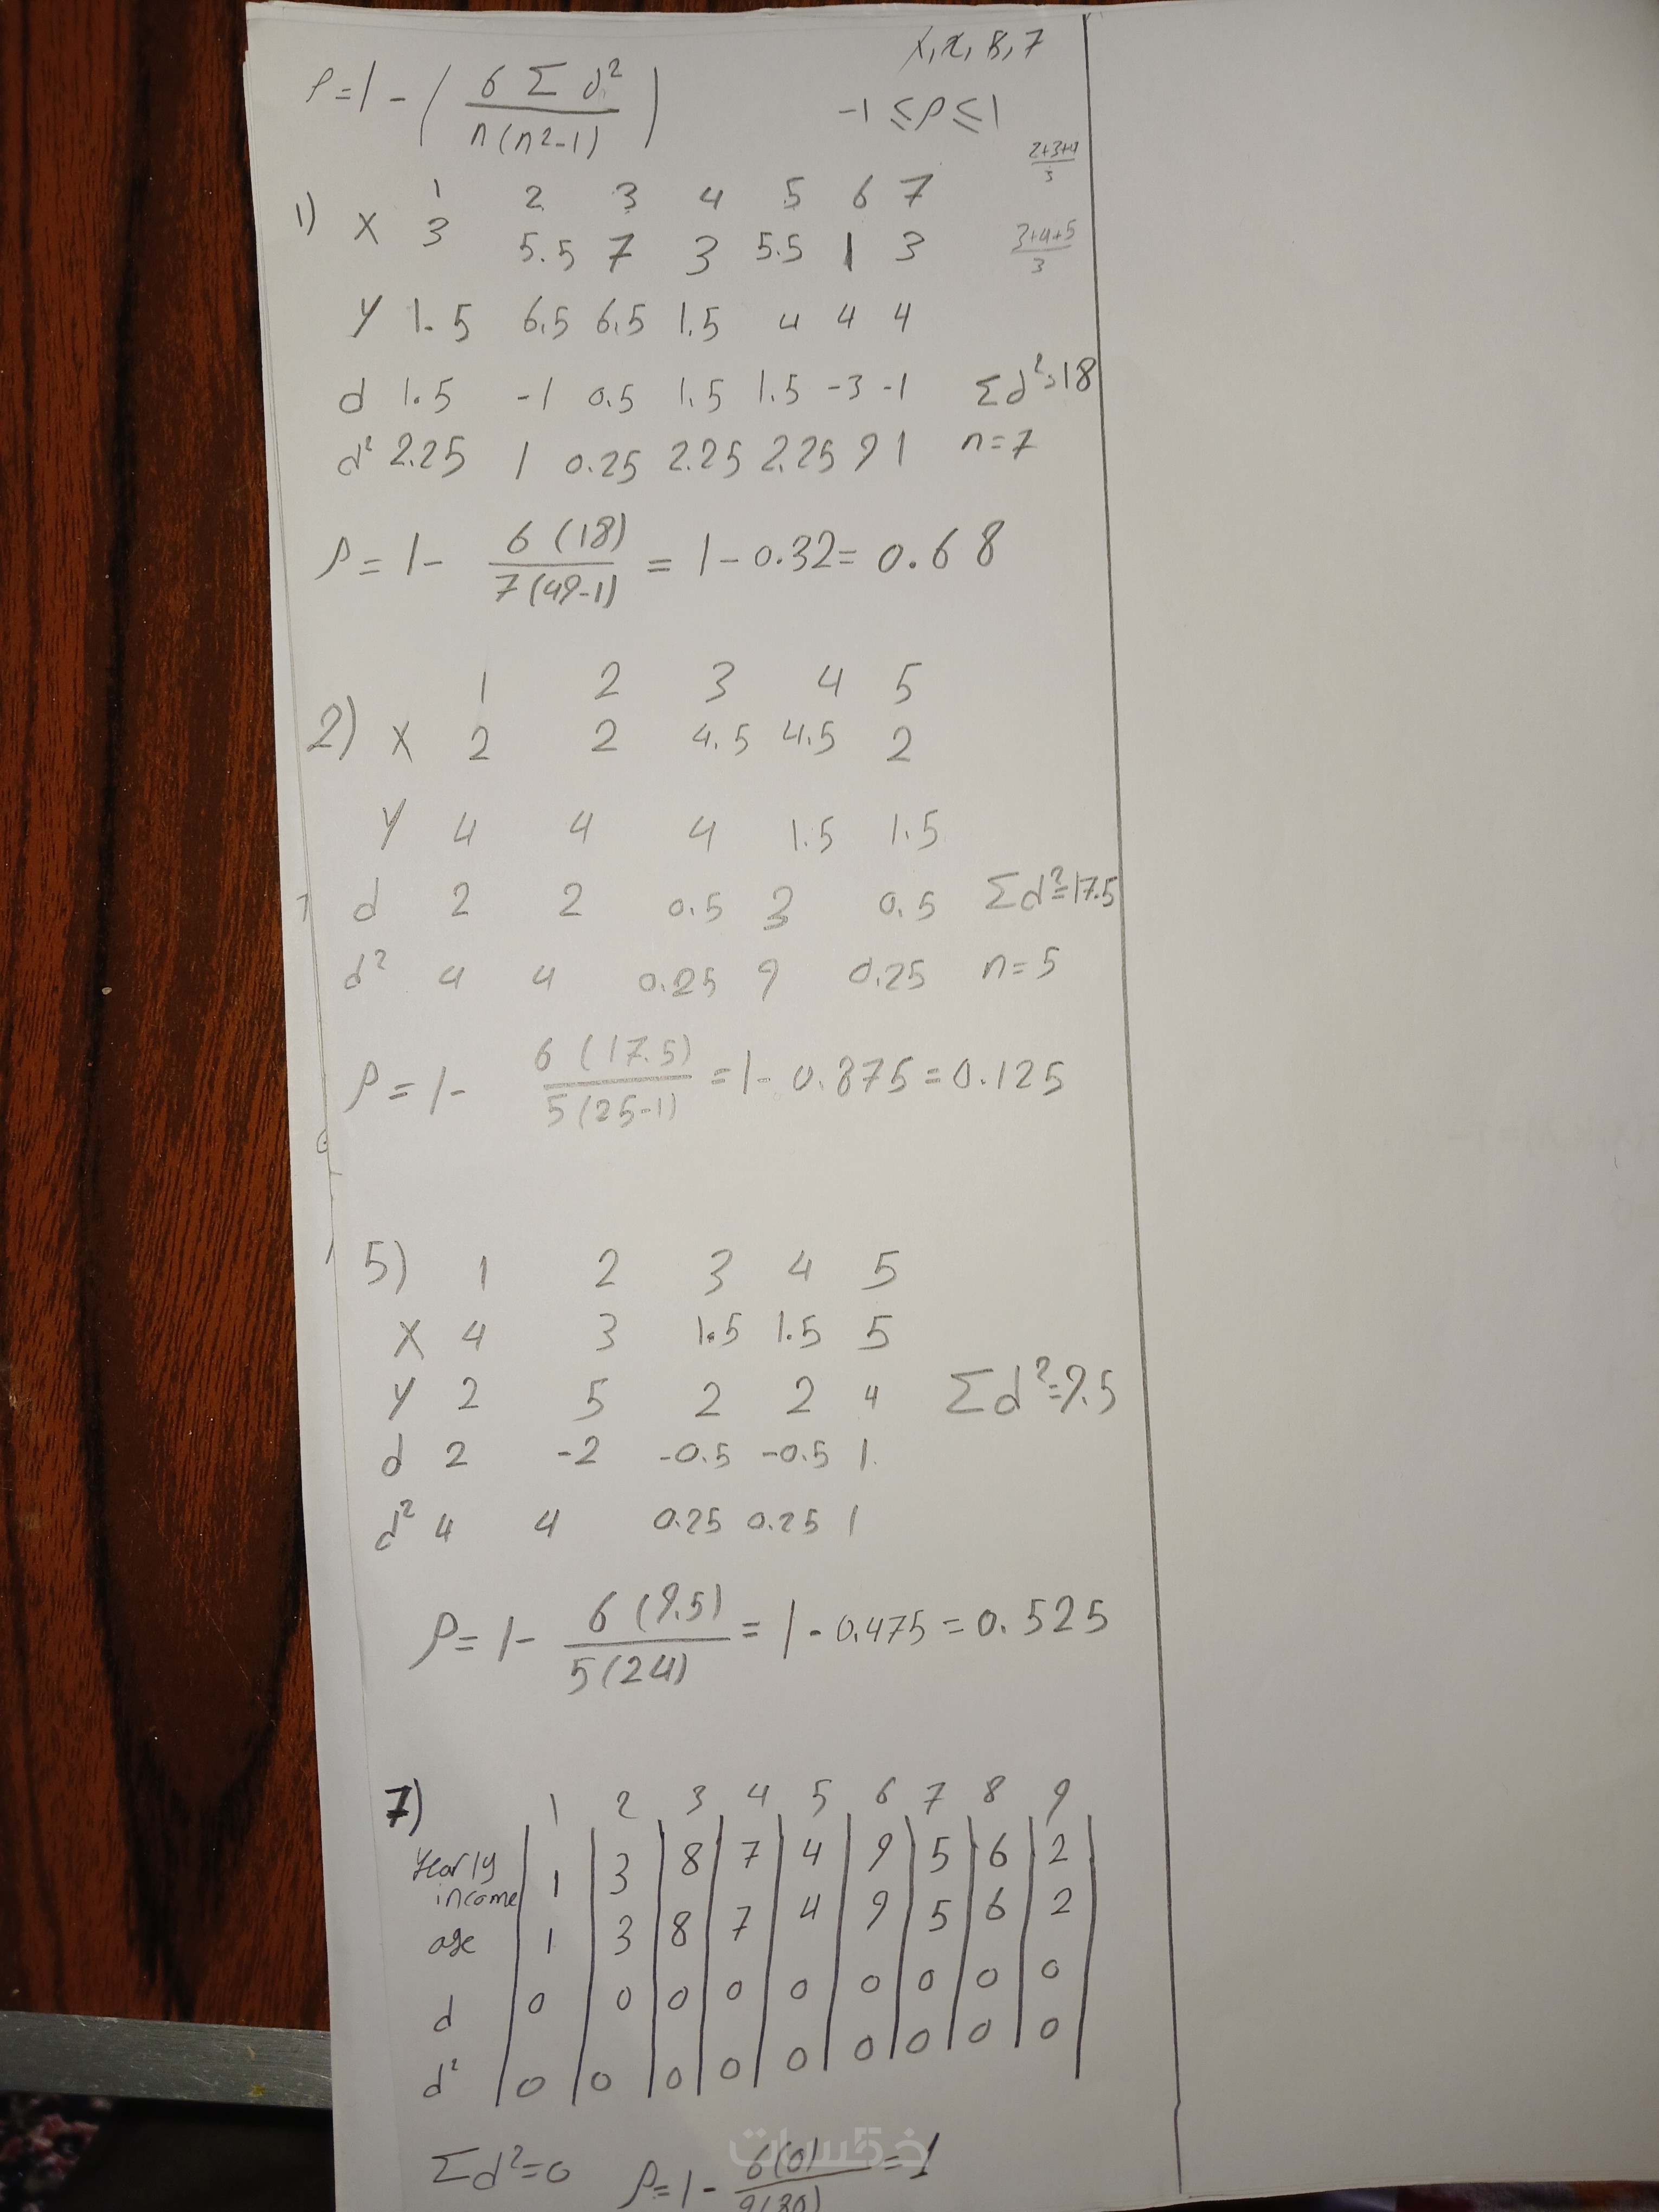 ρ=1-(6Σd²/n(n²-1))
-1≤ρ≤1
2+3+4/3
1) 1 2 3 4 5 6 7
X 3 5.5 7 3 5.5 1 3
3+4+5/3
Y 1.5 6.5 6.5 1.5 4 4 4
d 1.5 -1 0.5 1.5 1.5 -3 -1 Σd²=18
d² 2.25 1 0.25 2.25 2.25 9 1 n=7
ρ=1-6(18)/7(49-1)=1-0.32=0.68
1 2 3 4 5
2) X 2 2 4.5 4.5 2
Y 4 4 4 1.5 1.5
d 2 2 0.5 3 0.5 Σd²=17.5
d² 4 4 0.25 9 0.25 n=5
ρ=1-6(17.5)/5(25-1)=1-0.875=0.125
5) 1 2 3 4 5
X 4 3 1.5 1.5 5
Y 2 5 2 2 4 Σd²=9.5
d 2 -2 -0.5 -0.5 1
d² 4 4 0.25 0.25 1
ρ=1-6(9.5)/5(24)=1-0.475=0.525
7) 1 2 3 4 5 6 7 8 9
Yearly income 1 3 8 7 4 9 5 6 2
age 1 3 8 7 4 9 5 6 2
d 0 0 0 0 0 0 0 0 0
d² 0 0 0 0 0 0 0 0 0
Σd²=0 ρ=1-6(0)/9(80)=1
خمسات